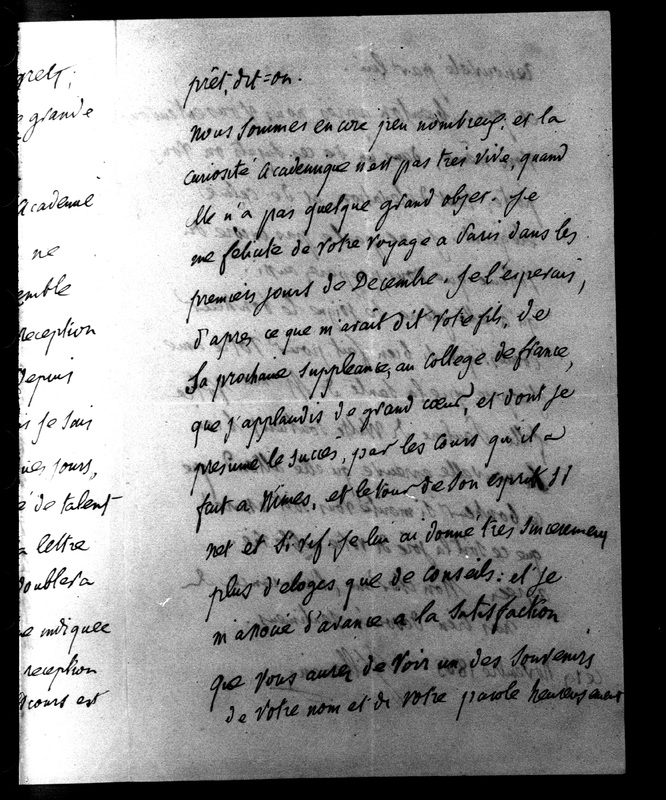 gret,
grande
Academie
ne
emble
reception
Depuis
is je sais
ues jours,
é de talent
a lettre
doublera
e indiquee
reception
cours est
prêt, dit=on.
nous sommes encore peu nombreux, et la
curiosité académique n'est pas très vive, quand
elle n'a pas quelque grand objet. Je
me felicite de votre voyage a Paris dans les
premiers jours de Decembre. Je l'esperais,
d'apres ce que m'avait dit votre fils, de
sa prochaine suppleance, au college de france,
que j'applaudis de grand cœur, et dont je
presume le succès, par les cours qu'il a
fait a Nimes, et le tour de son esprit si
net et si vif. Je lui ai donné tres sincerement
plus d'eloges que de conseils: et je
m'associe d'avance a la satisfaction
que vous aurez de voir un des souvenirs
de votre nom et de votre parole heureusement